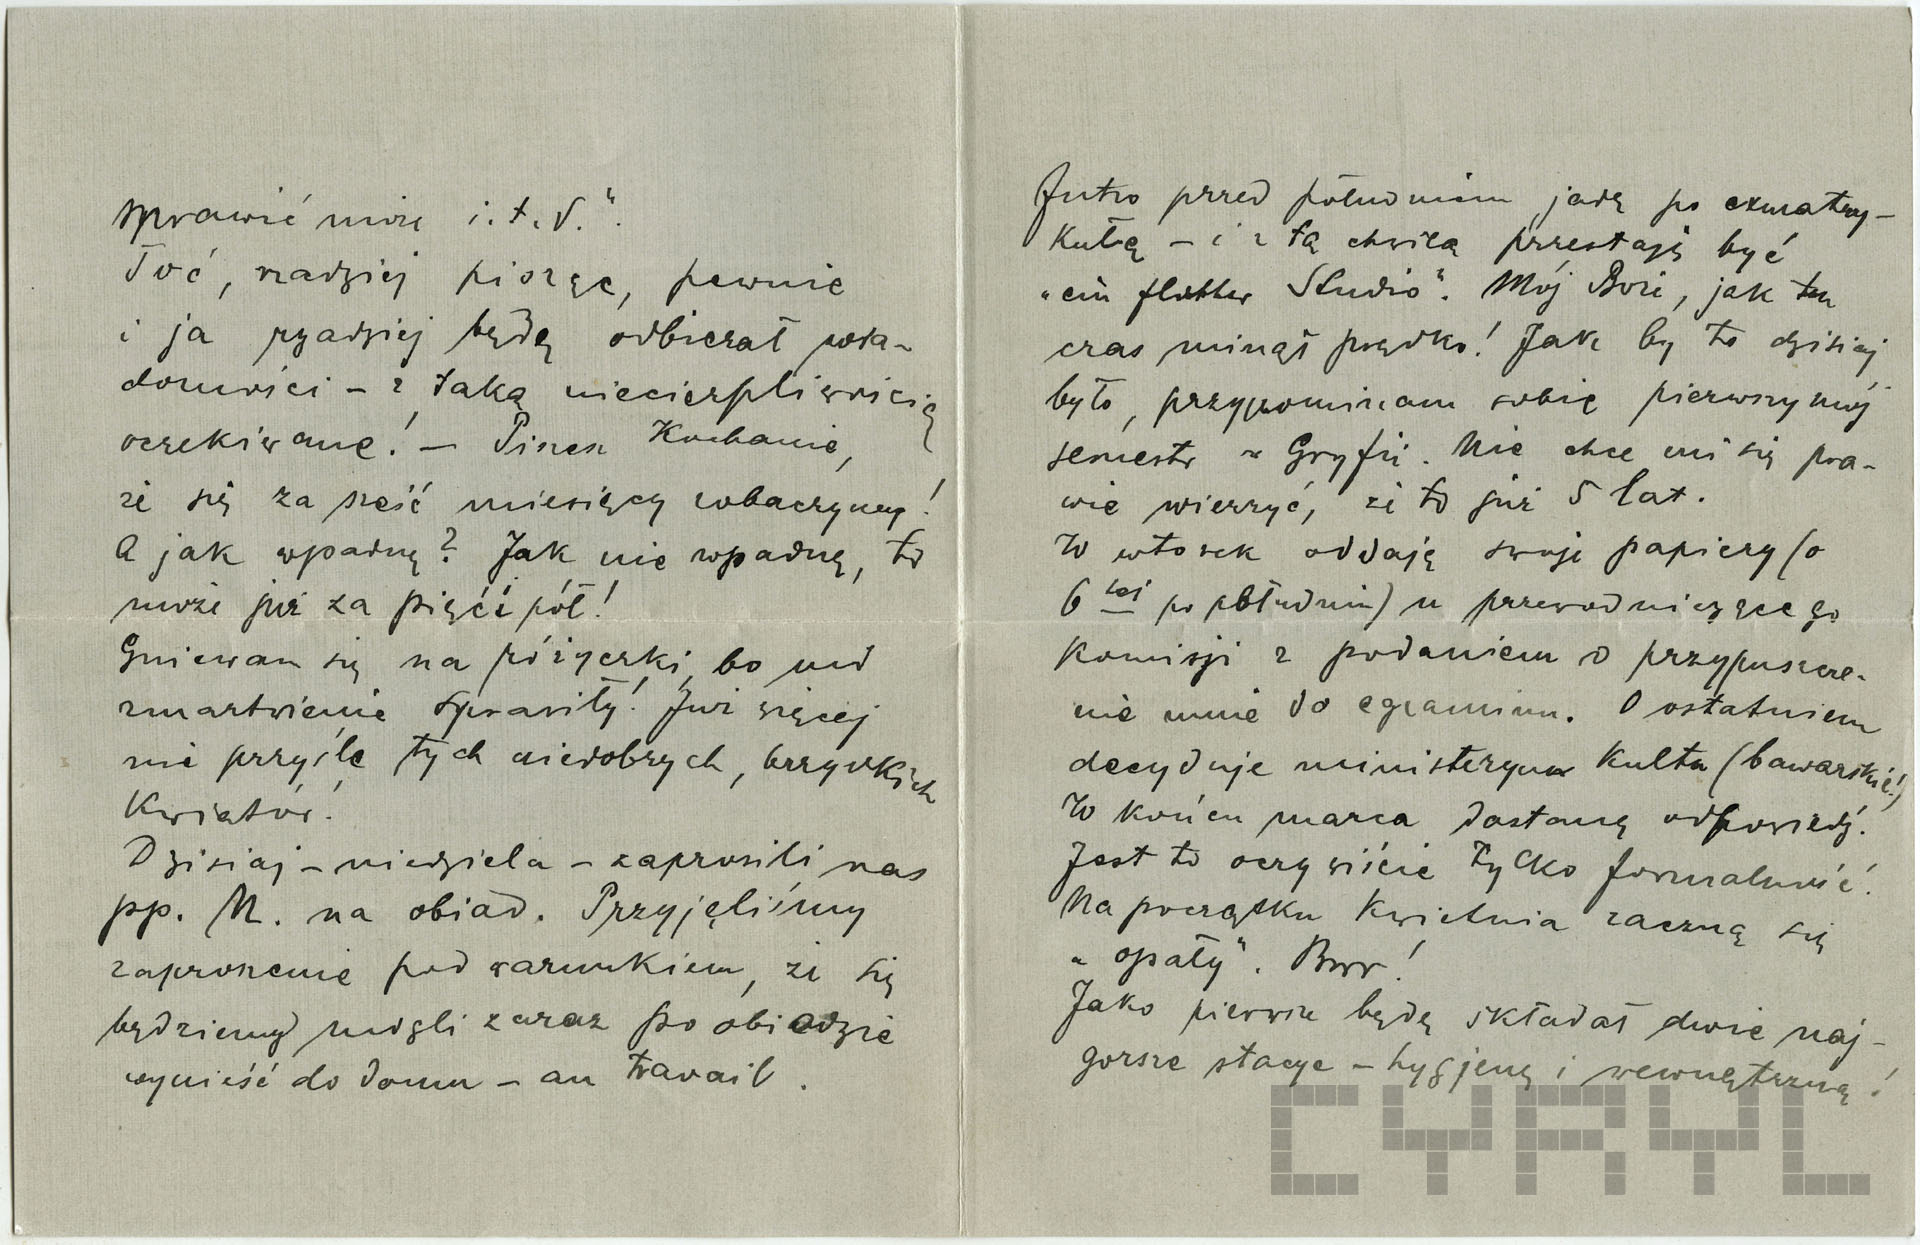 sprawić może i.t.d.".
Toć, rzadziej pisząc, pewnie
i ja rzadziej będę odbierał wia-
domości – z taką niecierpliwością
oczekiwane! – Piszesz Kochanie,
że się za sześć miesięcy zobaczymy!
A jak wpadnę? Jak nie wpadnę, to
może już za pięć i pół!
Gniewam się na różyczki, bo mó
zmartwienie sprawiły! Już więcej
nie przyślę tych niedobrych, brzydkich
kwiatów!
Dzisiaj – niedziela – zaprosili nas
pp. M. na obiad. Przyjęliśmy
zaproszenie pod warunkiem, że się
będziemy mogli zaraz po obiedzie
wynieść do domu – au travail.
Jutro przed południem jadę po exmatry-
kułę – i z tą chwilą przestaję być
"ein flotter Studio". Mój Boże, jak ten
czas minął prędko! Jak by to dzisiaj
było, przypominam sobie pierwszy mój
semestr w Gryfii. Nie chce mi się pra-
wie wierzyć, że to już 5 lat.
W wtorek oddaję swoje papiery (o
6tej po południu) u przewodniczącego
komisji z podaniem o przypuszcze-
nie mnie do egzaminu. O ostatniem
decyduje ministeryum kultu (bawarskie!)
W końcu marca dostanę odpowiedź.
Jest to oczywiście tylko formalność.
Na początku kwietnia zaczną się
"opały". Brrr!
Jako pierwsze będę składał dwie naj-
gorsze stacye – hygjenę i wewnętrzną!
CYRYL